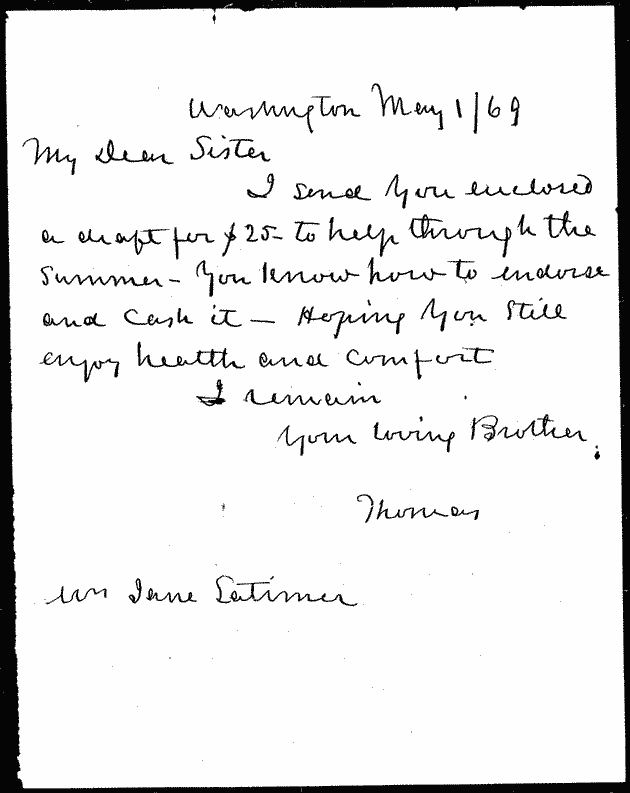 Washington May 1/69
My Dear Sister
I send you enclosed
a draft for $25- to help through the
Summer - You know how to endorse
and Cash it - Hoping you still
enjoy health and comfort
I remain
Your loving Brother
Thomas
Mrs Jane Latimer